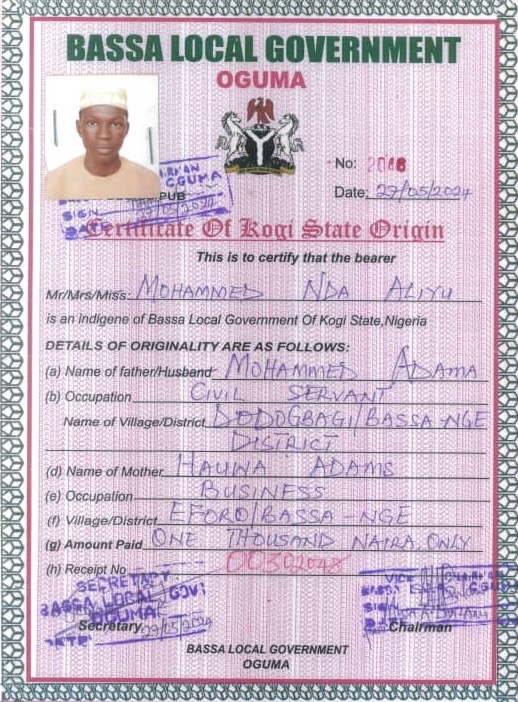 BASSA LOCAL GOVERNMENT
OGUMA
No: 2048
Date: 27/05/2024
OGUMA
PUB
SIGN
27/05/2024
Certificate Of Kogi State Origin
This is to certify that the bearer
Mr/Mrs/Miss: MOHAMMED NDA ALIYU
is an Indigene of Bassa Local Government Of Kogi State,Nigeria
DETAILS OF ORIGINALITY ARE AS FOLLOWS:
(a) Name of father/Husband MOHAMMED ADAMA
(b) Occupation CIVIL SERVANT
Name of Village/District DODOGBAGI/BASSA-NGE
DISTRICT
(d) Name of Mother HAUWA ADAMS
(e) Occupation BUSINESS
(f) Village/District EFORO/BASSA-NGE
(g) Amount Paid ONE THOUSAND NAIRA ONLY
(h) Receipt No 00302048
SECRETARY
BASSA LOCAL GOVT
OGUMA
VICE
SIGN
Secretary 27/05/2024
Chairman
DATE
BASSA LOCAL GOVERNMENT
OGUMA